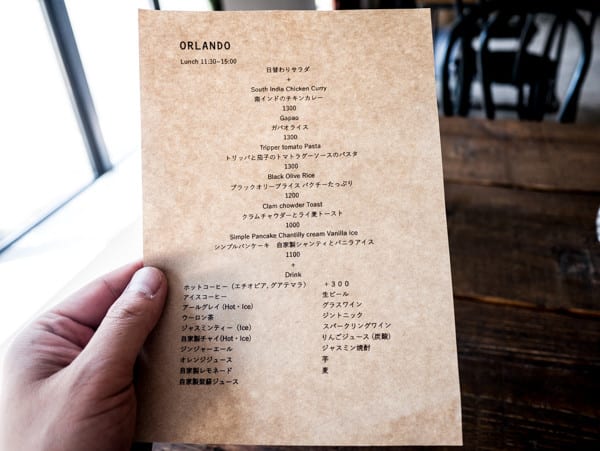 ORLANDO
Lunch 11:30-15:00
日替わりサラダ
+
South India Chicken Curry
南インドのチキンカレー
1300
Gapao
ガパオライス
1300
Tripper tomato Pasta
トリッパと茄子のトマトラグーソースのパスタ
1300
Black Olive Rice
ブラックオリーブライス パクチーたっぷり
1200
Clam chowder Toast
クラムチャウダーとライ麦トースト
1000
Simple Pancake Chantilly cream Vanilla ice
シンプルパンケーキ 自家製シャンティとバニラアイス
1100
+
Drink
ホットコーヒー (エチオピア, グアテマラ)
アイスコーヒー
アールグレイ (Hot・Ice)
ウーロン茶
ジャスミンティー (Ice)
自家製チャイ(Hot・Ice)
ジンジャーエール
オレンジジュース
自家製レモネード
自家製紫蘇ジュース
+300
生ビール
グラスワイン
ジントニック
スパークリングワイン
りんごジュース (炭酸)
ジャスミン焼酎
芋
麦